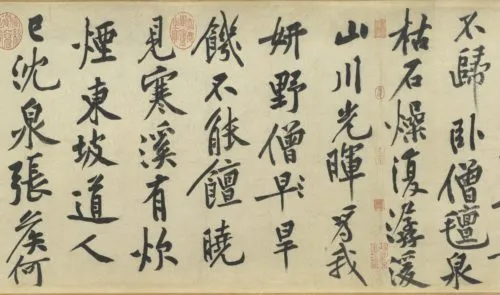 不歸臥僧氊泉
枯石燥復潺湲
山川光暉為我
妍野僧早旱
饑不能饘曉
見寒溪有炊
煙東坡道人
已沈泉張侯何